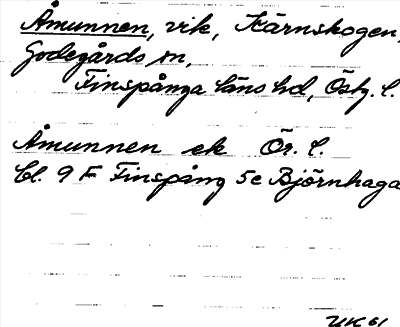 Åmunnen, vik, Kärnskogen,
Godegårds sn,
Finspånga läns hd, Östg. l.
Åmunnen ek Ör. l.
bl. 9 F Finspång 5e Björnhaga
UK 61